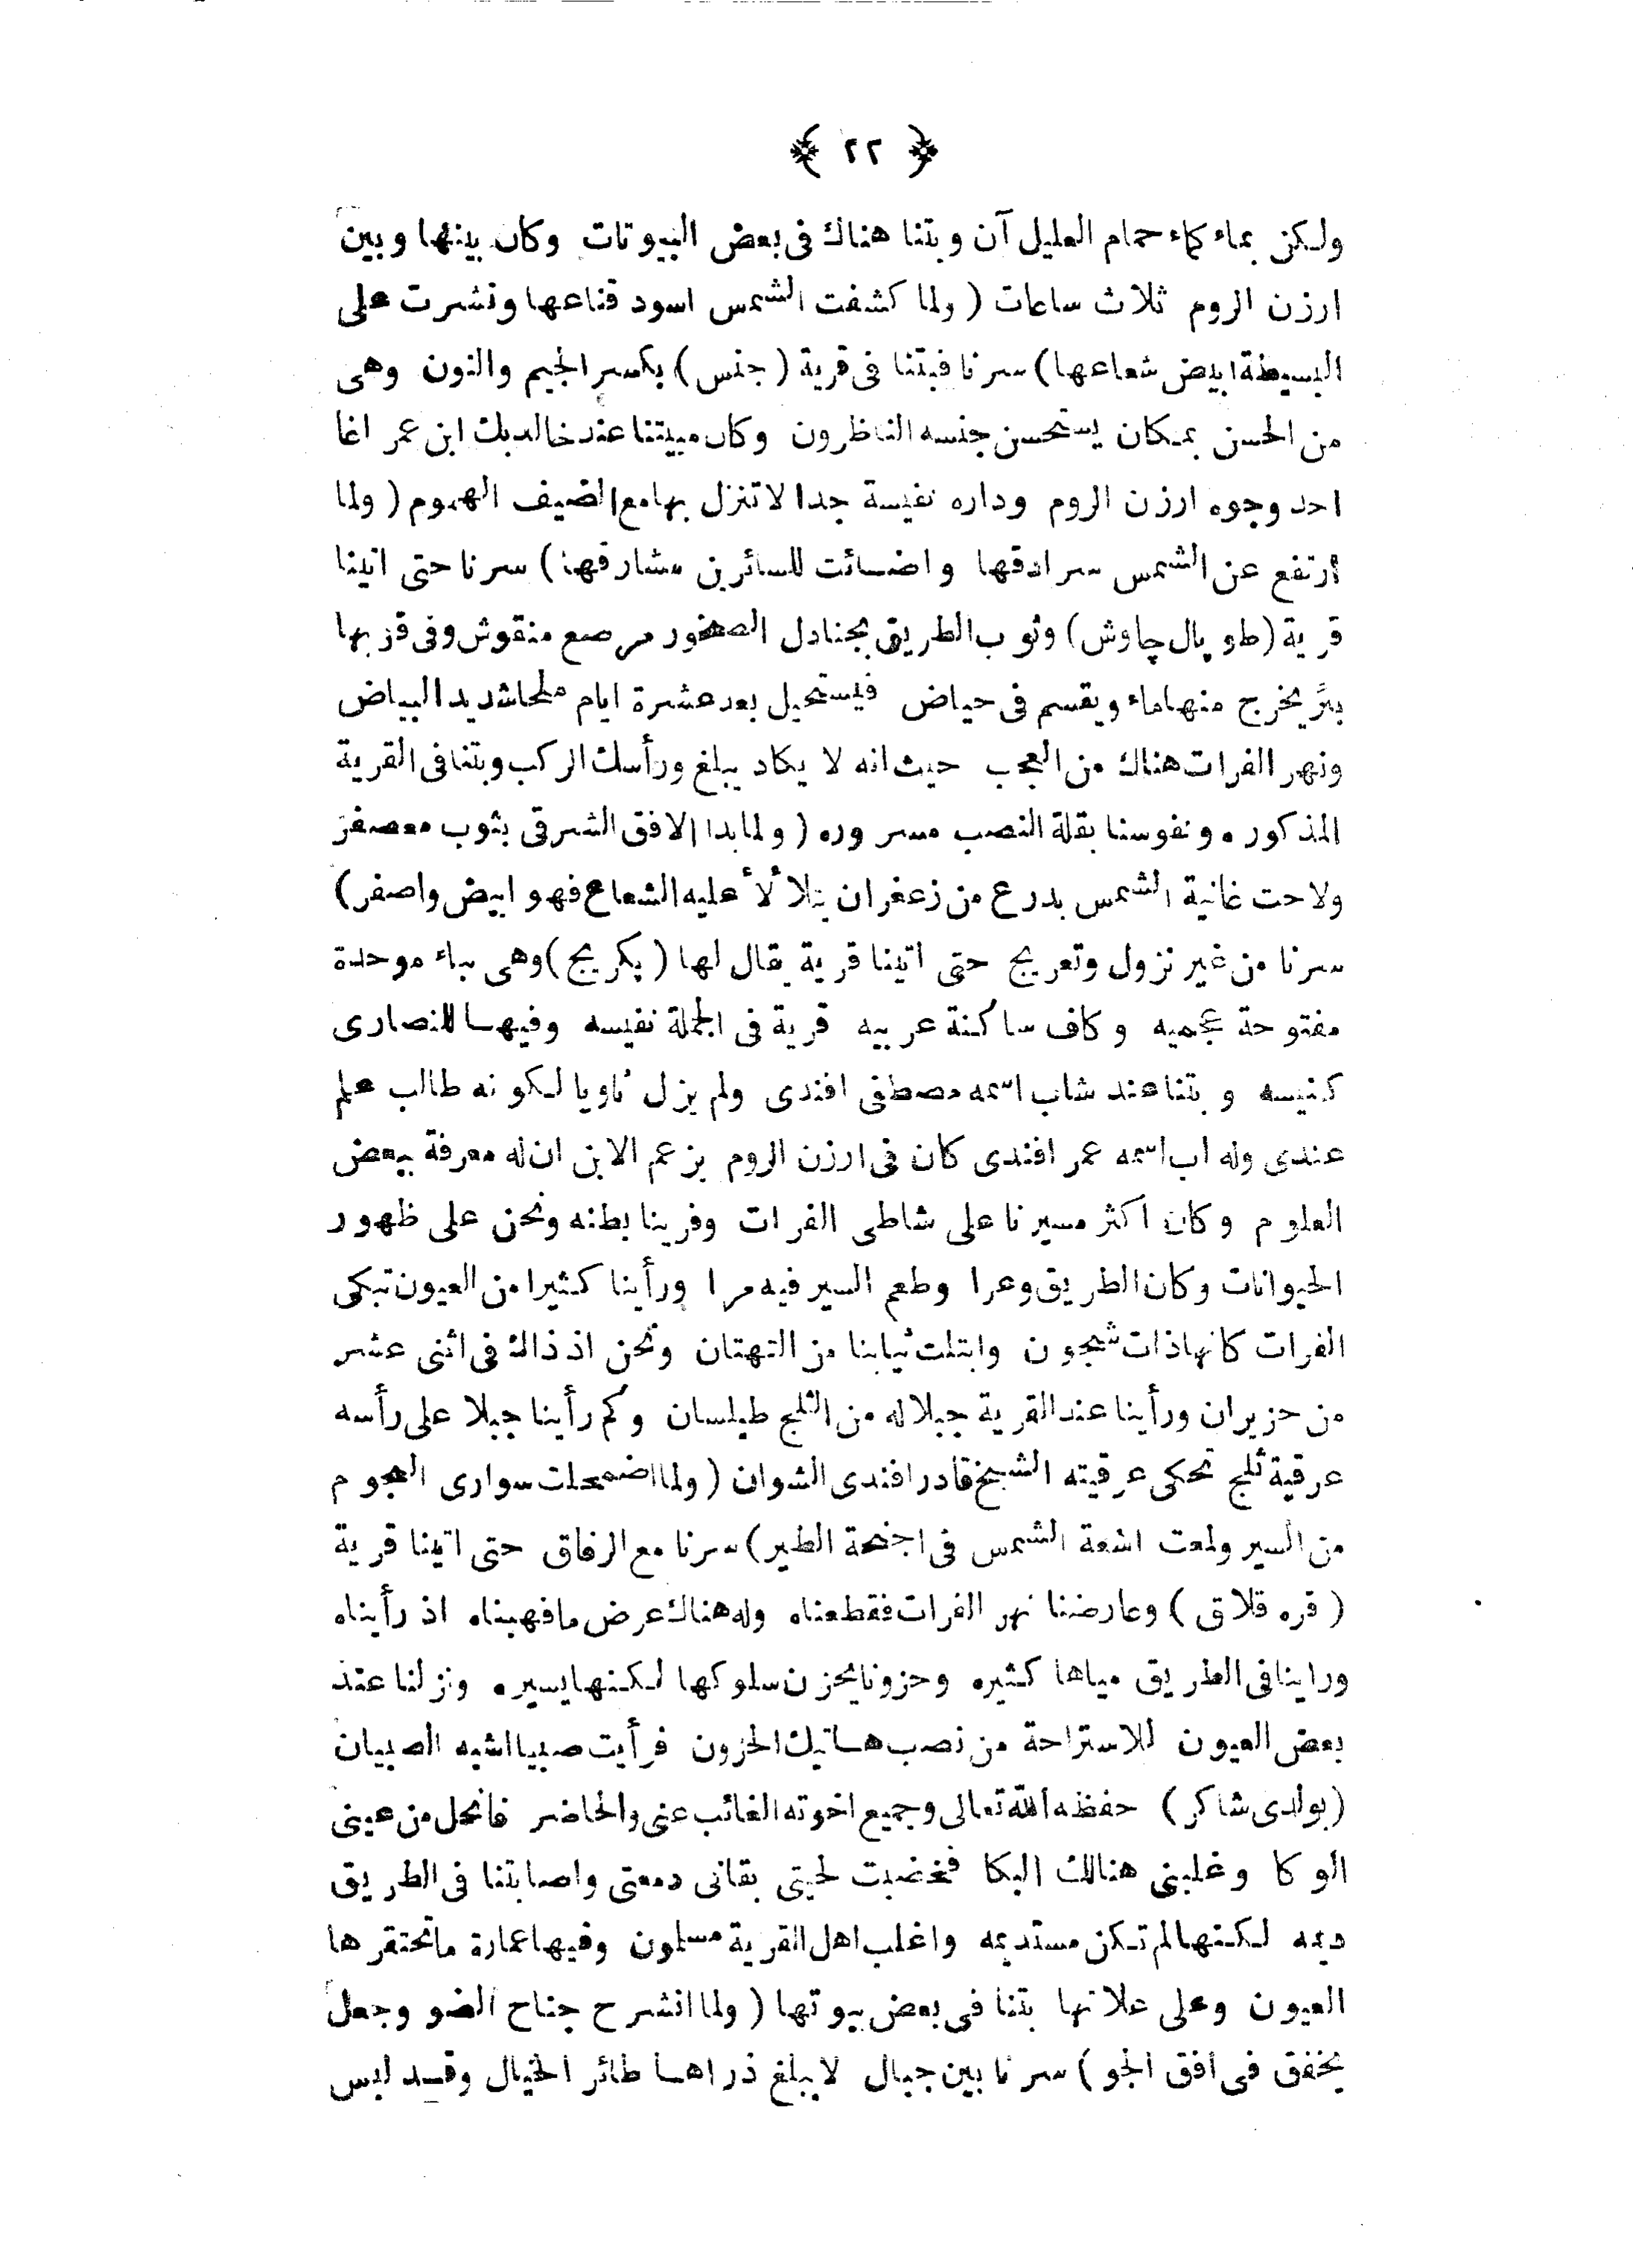 ﴿ ٢٢ ﴾
ولكن بماء كماء حمام العليل آن وبتنا هناك فى بعض البيوتات وكان بينها وبين
ارزن الروم ثلاث ساعات ( ولما كشفت الشمس اسود قناعها ونشرت على
البسيطة ابيض شعاعها ) سرنا فبتنا فى قرية ( جنس ) بكسر الجيم والنون وهى
من الحسن بمكان يستحسن جنسه الناظرون وكان مبيتنا عند خالد بك ابن عمر اغا
احد وجوه ارزن الروم وداره نفيسة جدا لا تنزل بها مع الضيف الهموم ( ولما
ارتفع عن الشمس سرادقها واضائت للسائرين مشارقها ) سرنا حتى اتينا
قرية ( طوپال چاوش ) وثوب الطريق بجنادل الصخور مرصع منقوش وفى قربها
بئر يخرج منها ماء ويقسم فى حياض فيستحيل بعد عشرة ايام ملحا شديد البياض
ونهر الفرات هناك من العجب حيث انه لا يكاد يبلغ ورأسك الركب وبتنا فى القرية
المذكوره ونفوسنا بقلة النصب مسروره ( ولما بدا الافق الشرقى بثوب معصفر
ولاحت غانية الشمس بدرع من زعفران يتلألأ عليه الشعاع فهو ابيض واصفر )
سرنا من غير نزول وتعريج حتى اتينا قرية يقال لها ( پكريج ) وهى بباء موحدة
مفتوحة عجميه وكاف ساكنة عربيه قرية فى الجملة نفيسه وفيها للنصارى
كنيسه وبتنا عند شاب اسمه مصطفى افندى ولم يزل ثاويا لكونه طالب علم
عندى وله اب اسمه عمر افندى كان فى ارزن الروم يزعم الابن ان له معرفة ببعض
العلوم وكان اكثر مسيرنا على شاطى الفرات وفرينا بطنه ونحن على ظهور
الحيوانات وكان الطريق وعرا وطعم السير فيه مرا ورأينا كثيرا من العيون تبكى
الفرات كانها ذات شجون وابتلت ثيابنا من التهتان ونحن اذ ذاك فى اثنى عشر
من حزيران ورأينا عند القرية جبلا له من الثلج طيلسان وكم رأينا جبلا على رأسه
عرقية ثلج تحكى عرقيته الشيخ قادر افندى الشوان ( ولما اضمحلت سوارى النجوم
من السير ولمعت اشعة الشمس فى اجنحة الطير ) سرنا مع الرفاق حتى اتينا قرية
( قره قلاق ) وعارضنا نهر الفرات فقطعناه وله هناك عرض ما فهبناه اذ رأيناه
وراينا فى الطريق مياها كثيره وحزونا يحزن سلوكها لكنها يسيره ونزلنا عند
بعض العيون للاستراحة من نصب هاتيك الحزون فرأيت صبيا اشبه الصبيان
( بولدى شاكر ) حفظه الله تعالى وجميع اخوته الغائب عنى والحاضر فانحل من عينى
الوكا وغلبنى هنالك البكا فخضبت لحيتى بقانى دمعتى واصابتنا فى الطريق
ديمه لكنها لم تكن مستديمه واغلب اهل القرية مسلمون وفيها عمارة ما تحتقرها
العيون وعلى علاتها بتنا فى بعض بيوتها ( ولما انشرح جناح الضو وجعل
يخفق فى افق الجو ) سرنا بين جبال لا يبلغ ذراها طائر الخيال وقد لبس